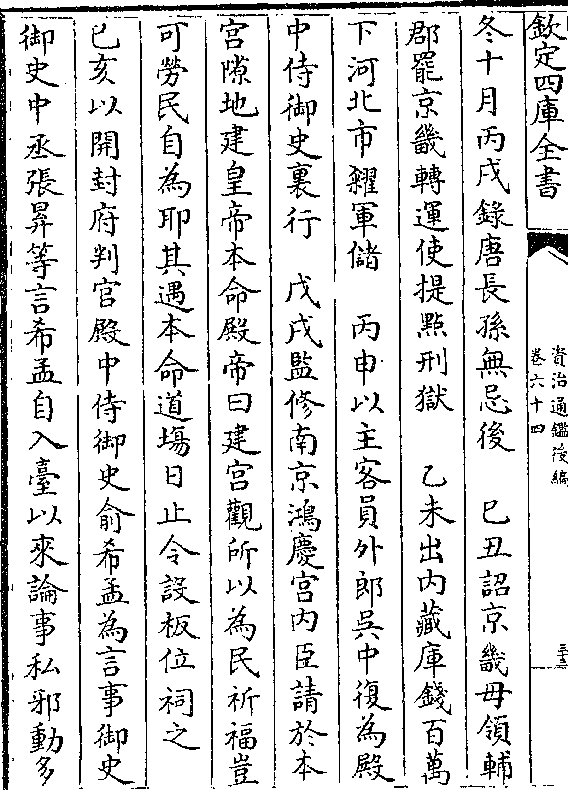 欽定四庫全書
資治通鑑後編
卷六十四
三十三
冬十月丙戌錄唐長孫無忌後　己丑詔京畿毋領輔
郡罷京畿轉運使提點刑獄　乙未出内藏庫錢百萬
下河北市糴軍儲　丙申以主客員外郎吳中復為殿
中侍御史裏行　戊戌監修南京鴻慶宮内臣請於本
宮隙地建皇帝本命殿帝曰建宮觀所以為民祈福豈
可勞民自為耶其遇本命道塲日止令設板位祠之
己亥以開封府判官殿中侍御史俞希孟為言事御史
御史中丞張昪等言希孟自入臺以來論事私邪動多